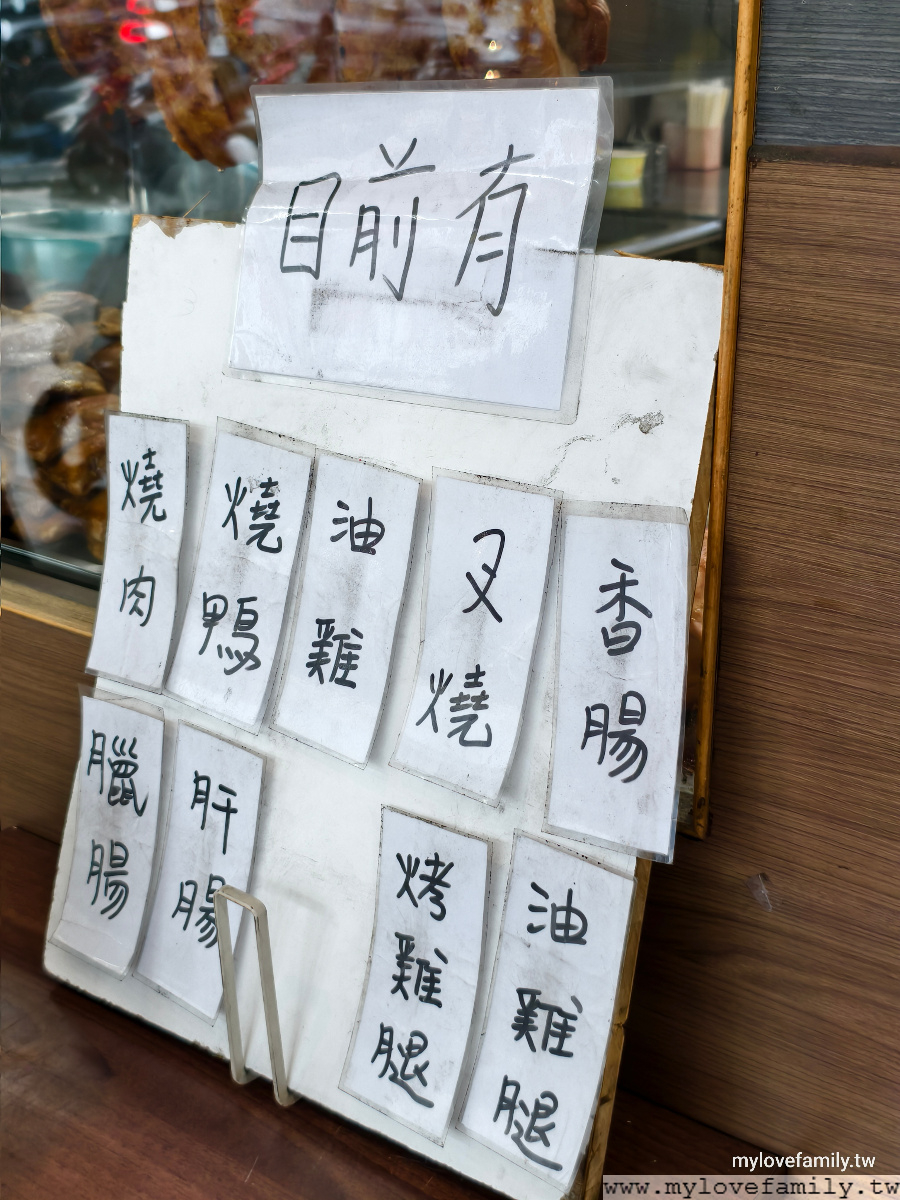 目前有
燒肉
燒鴨
油雞
叉燒
香腸
臘腸
肝腸
烤雞腿
油雞腿
mylovefamily.tw
www.mylovefamily.tw